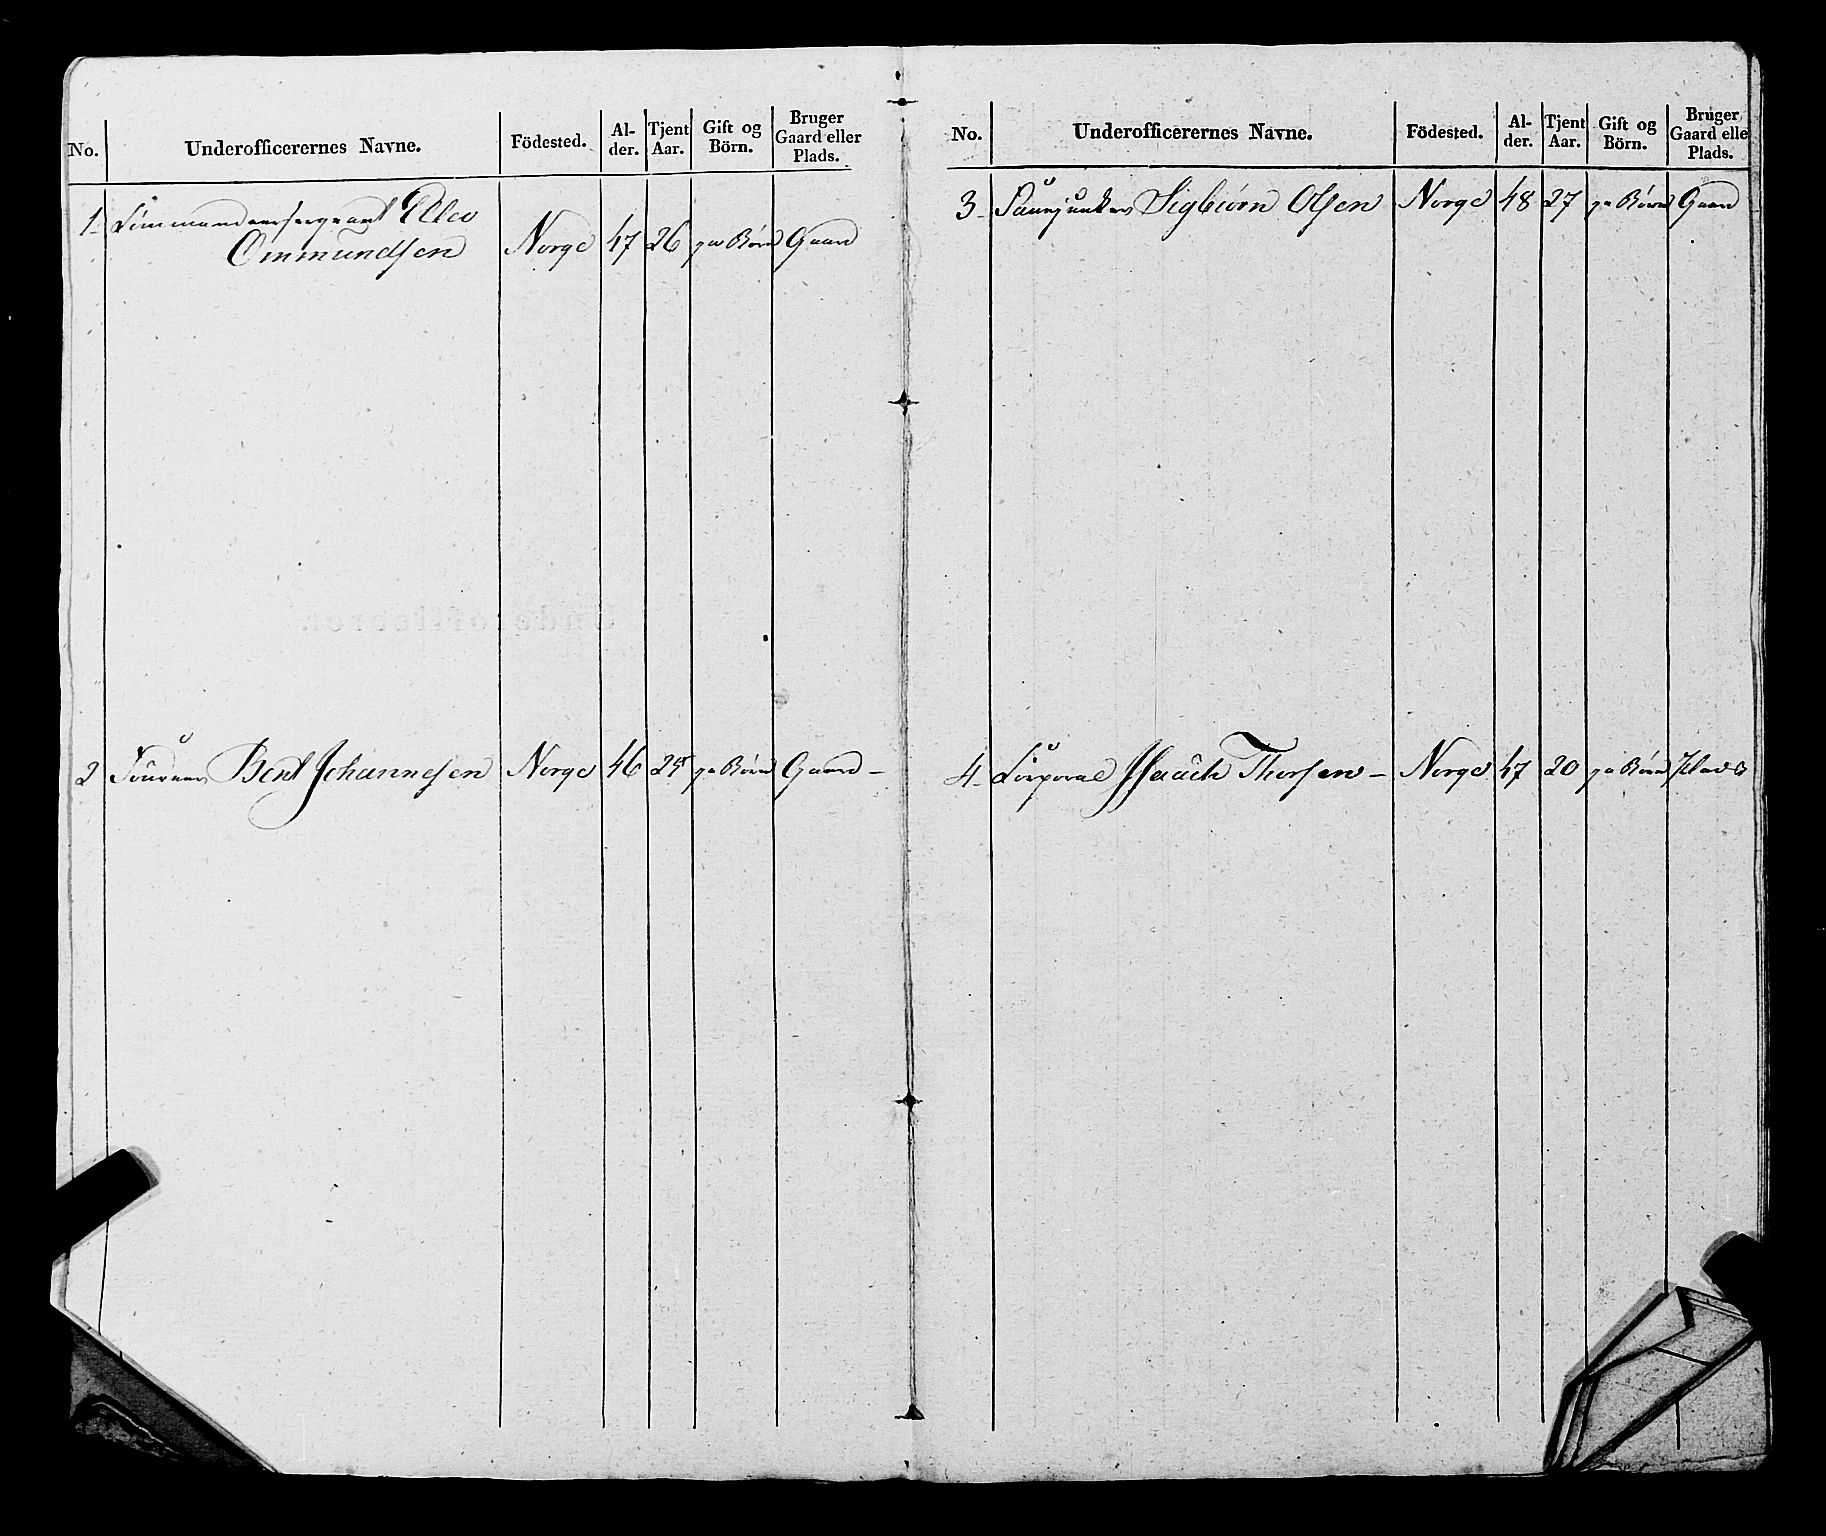 No. Underofficerernes Navne. Födested. Al-der. Tjent Aar. Gift og Börn. Bruger Gaard eller Plads.
1. Commandeersergeant Elev
Ommundsen Norge 47 26 ja Börn Gaard
2 Foureer Bent Johannesen Norge 46 25 ja Börn Gaard –
No. Underofficerernes Navne. Födested. Al-der. Tjent Aar. Gift og Börn. Bruger Gaard elle Plads.
3. Fanejunker Sigbiörn Olsen Norge 48 27 ja Börn Gaard
4. Corporal Thorsen – Norge 47 20 ja Börn Plads
Underofficerer.